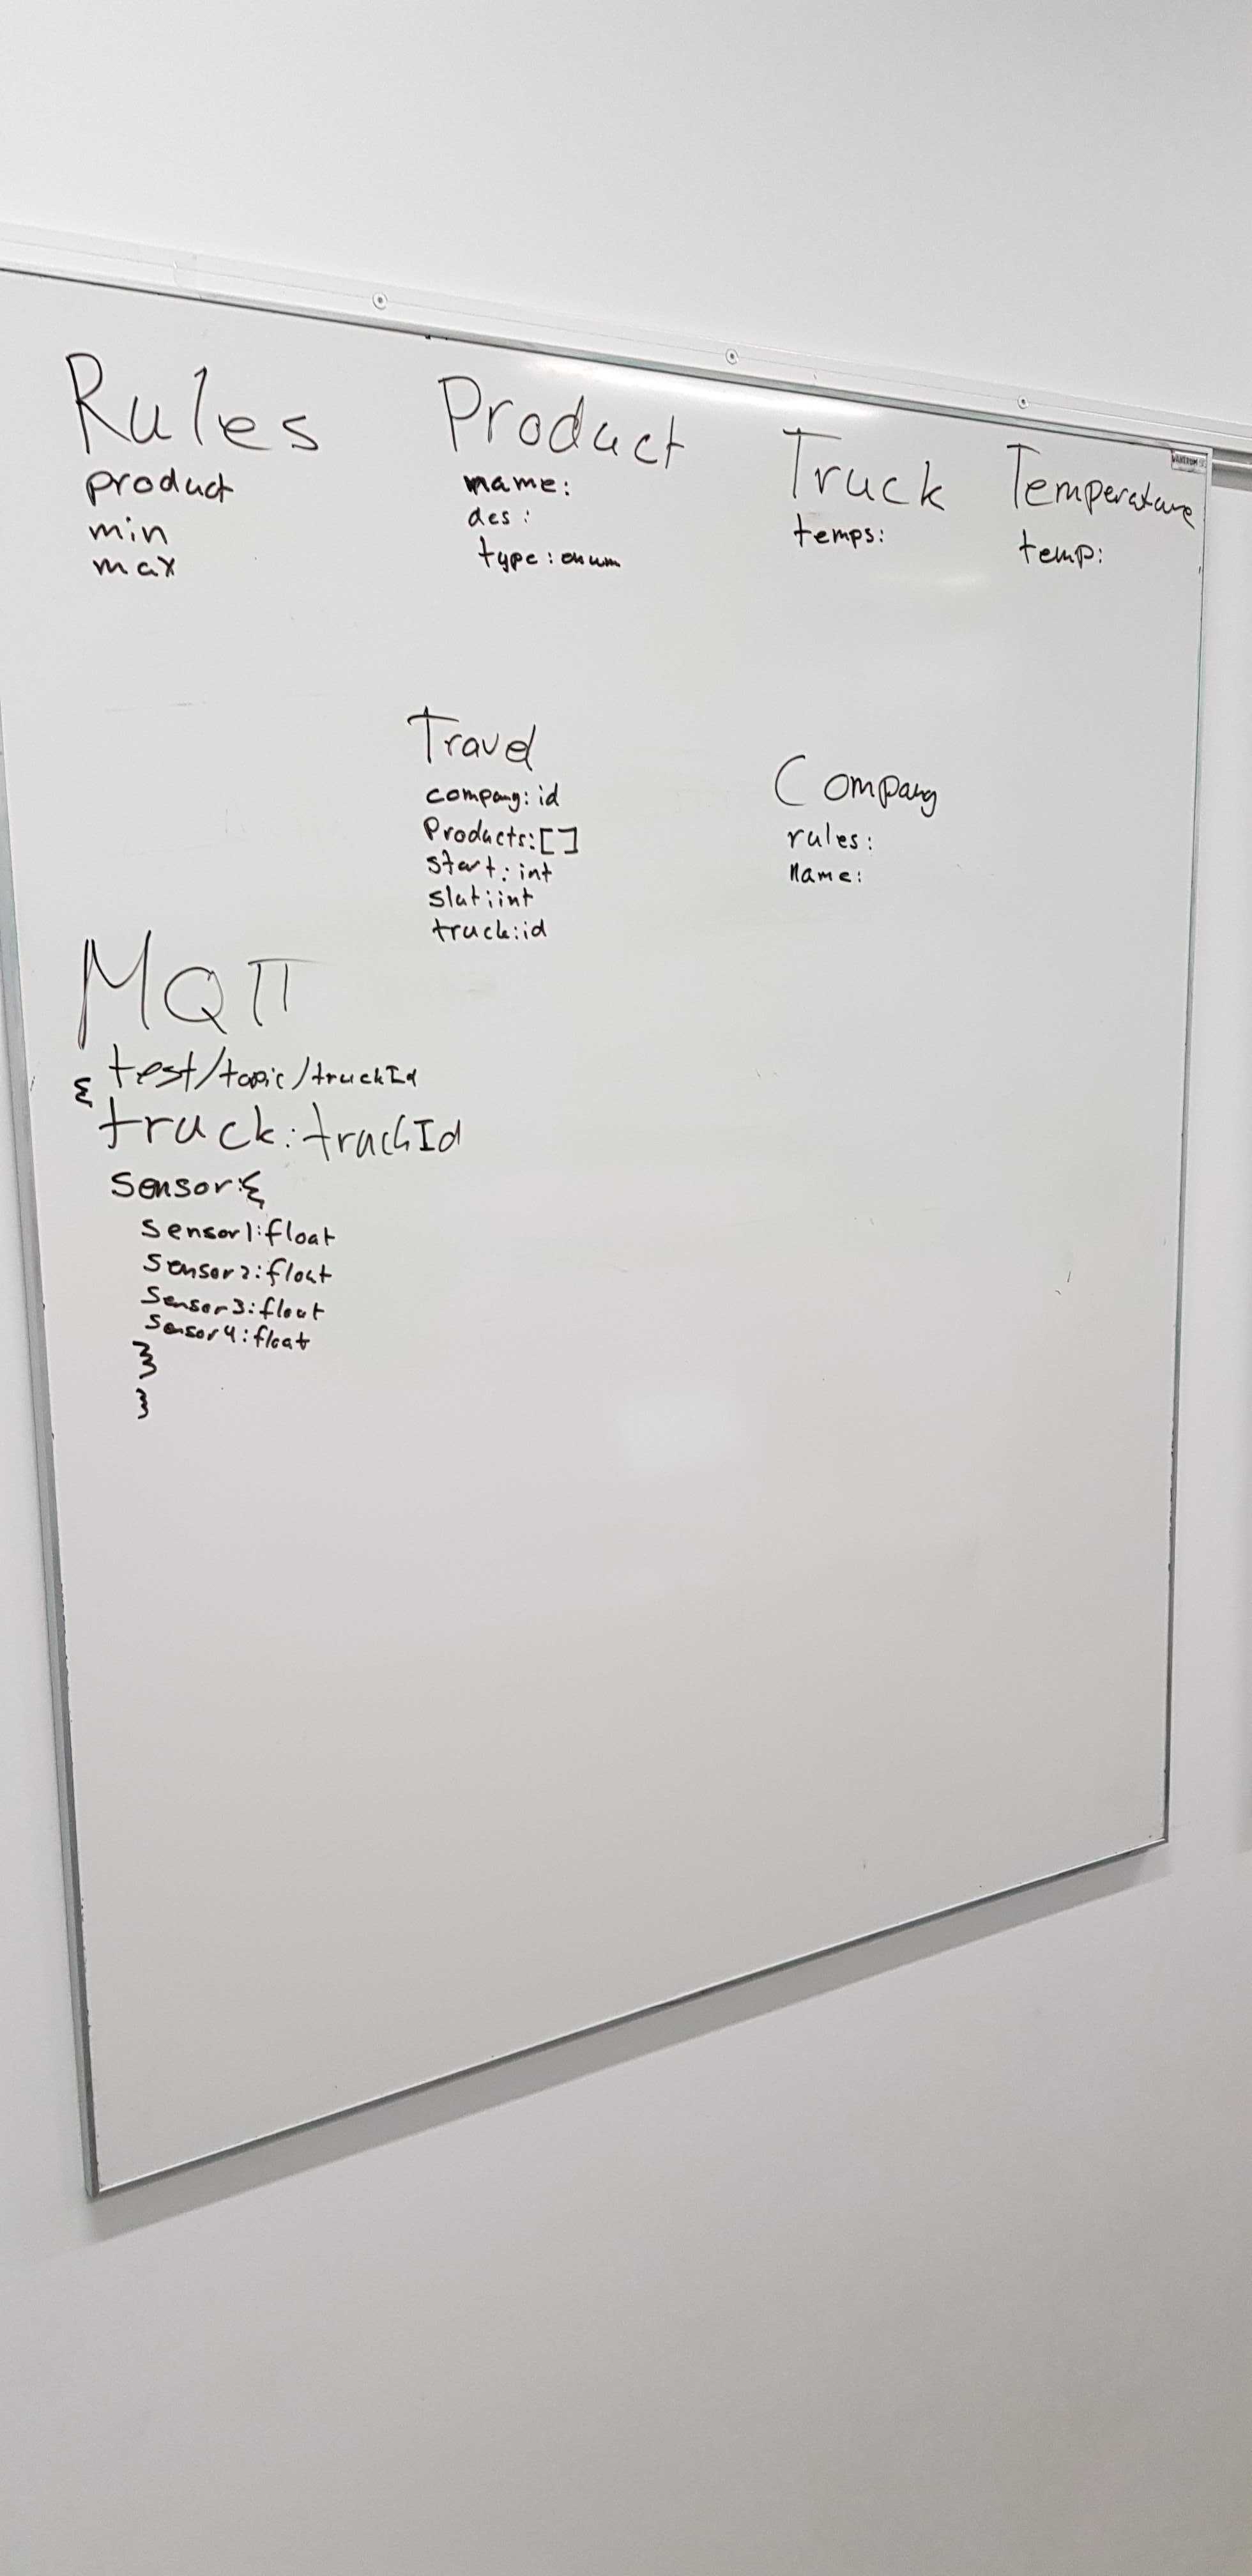 Rules
product
min
max
Product
name:
des:
type: enum
Truck
temps:
Temperature
temp:
Travel
company: id
Products: []
start: int
slut: int
truck: id
Company
rules:
Name:
MQTT
test/topic/truckId
{
truck: truckId
sensor: {
Sensor1: float
Sensor2: float
Sensor3: float
Sensor4: float
}
}